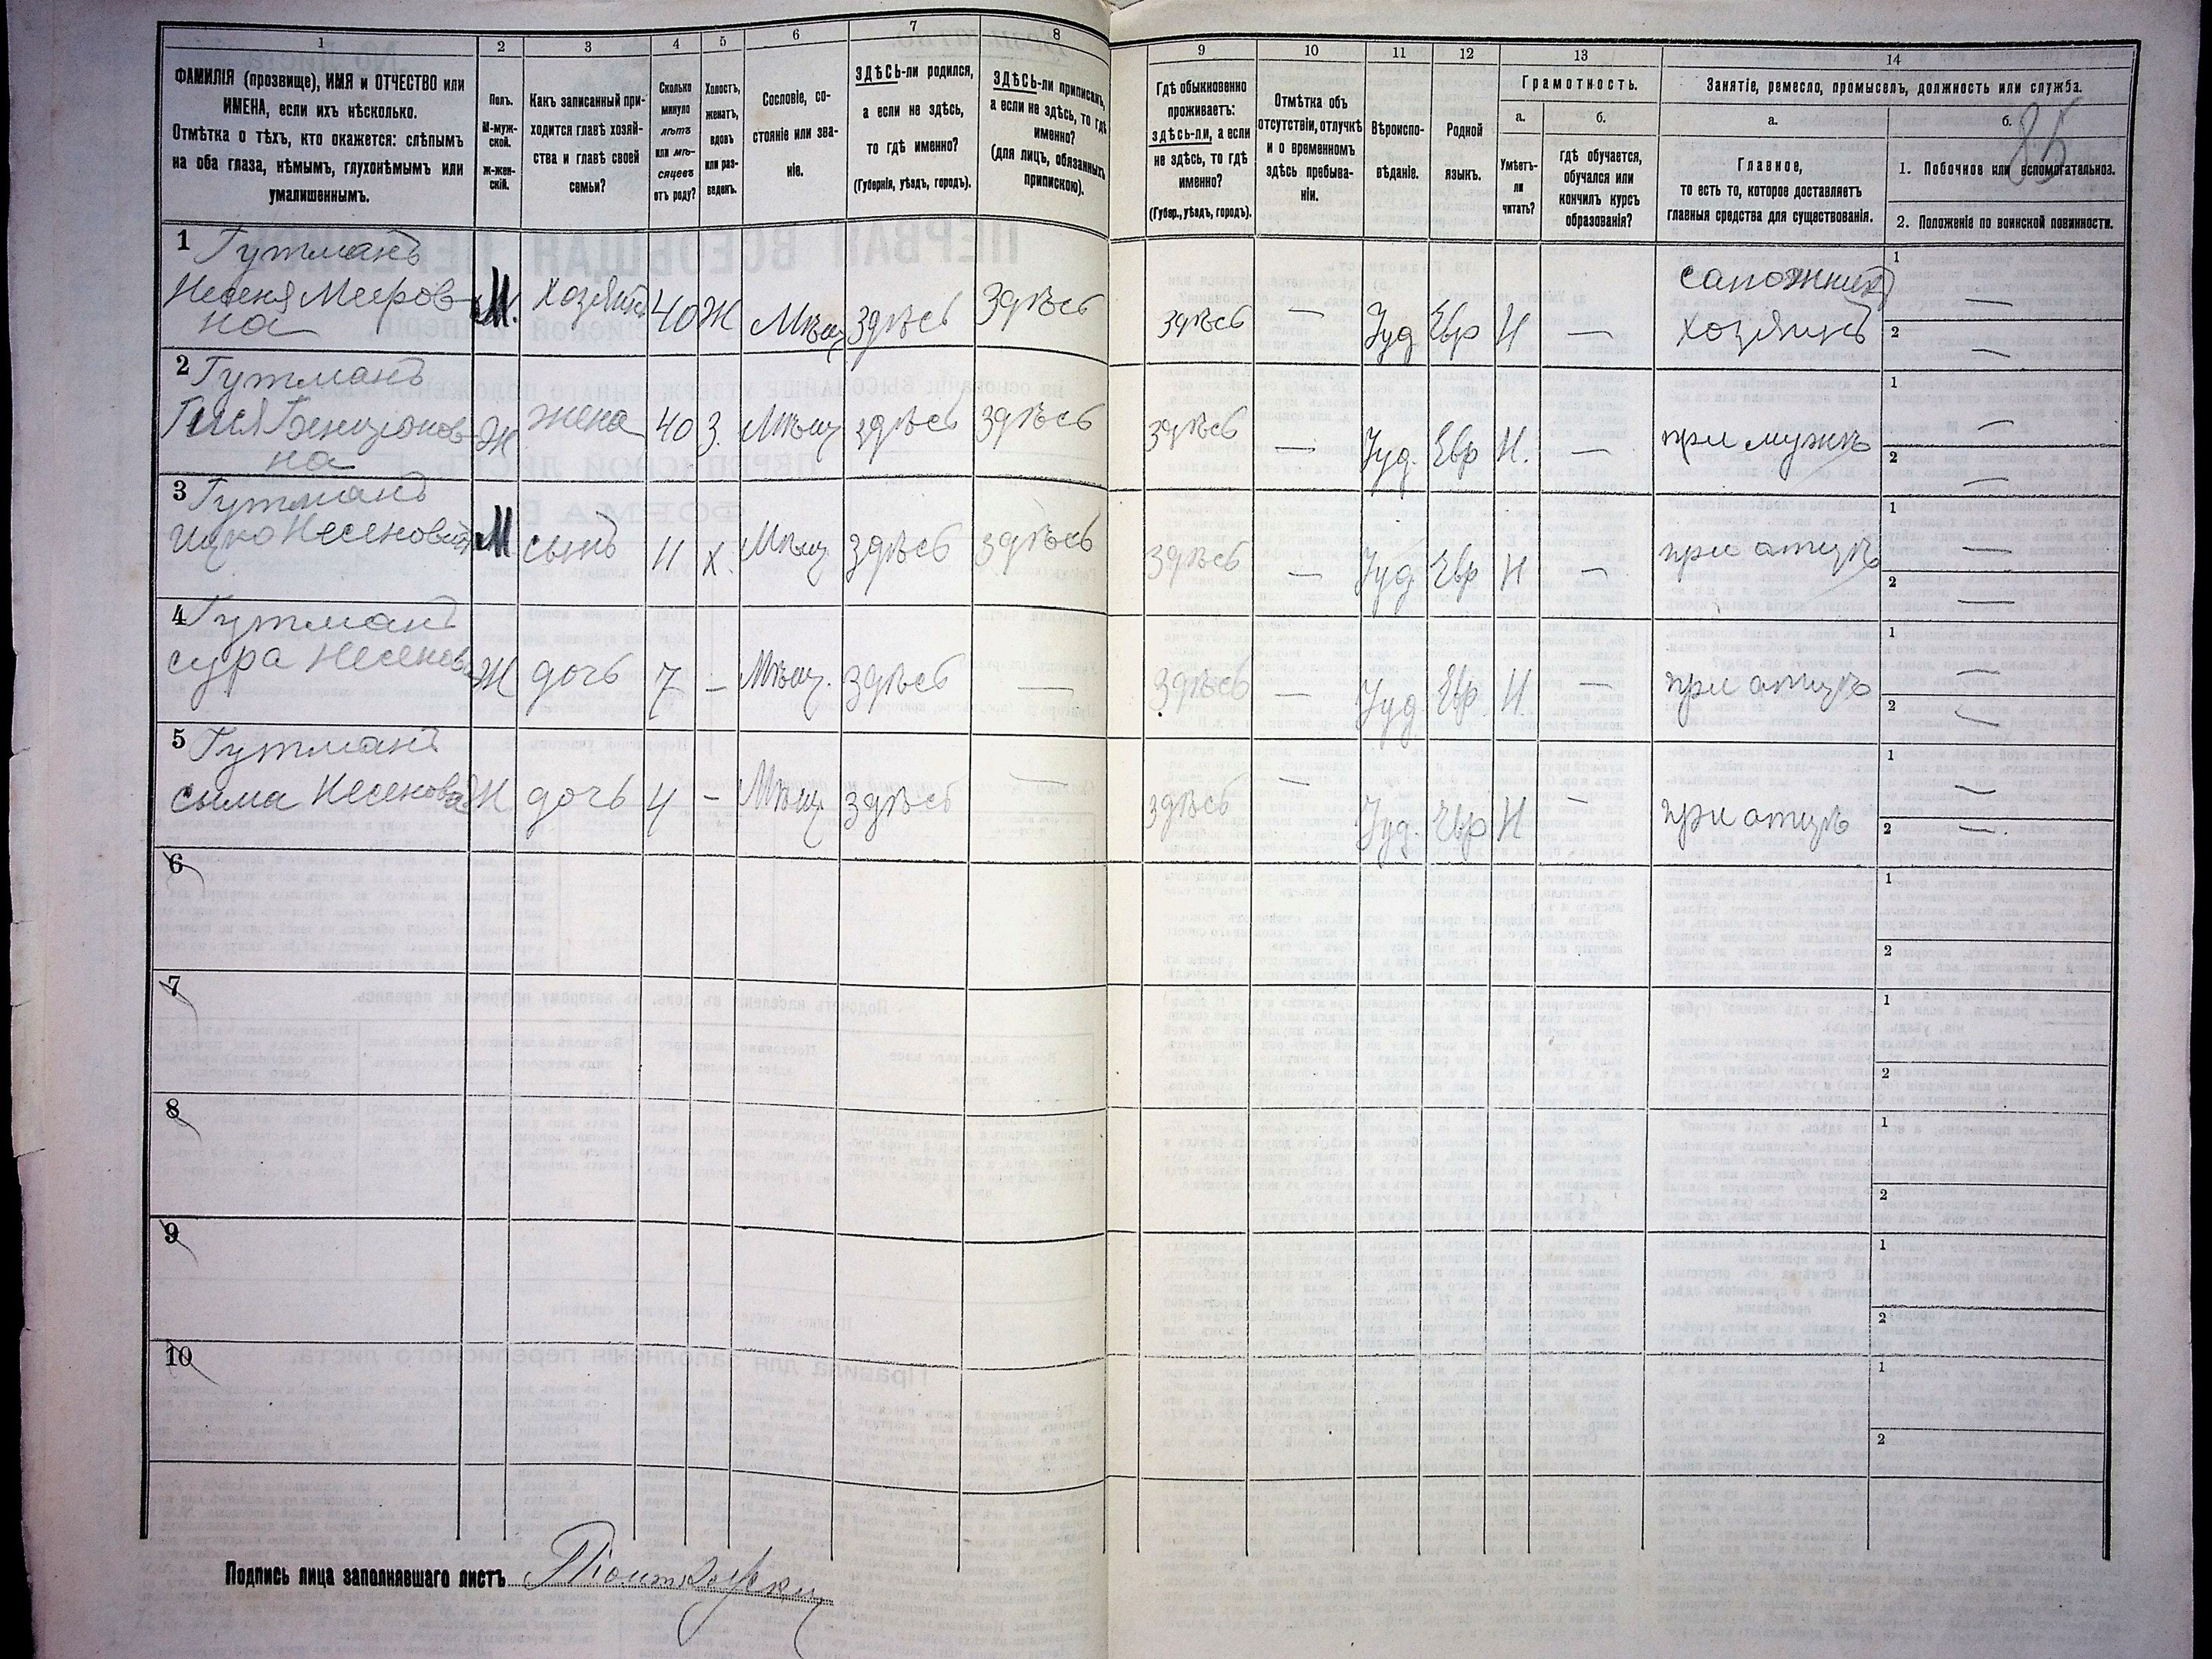 1 2 3 4 5 6 7 8 9 10 11 12 13 14
ФАМИЛІЯ (прозвище), ИМЯ и ОТЧЕСТВО или
ИМЕНА, если ихъ нѣсколько.
Отмѣтка о тѣхъ, кто окажется: слѣпымъ
на оба глаза, нѣмымъ, глухонѣмымъ или
умалишеннымъ.
Полъ.
М-муж-
ской.
Ж-жен-
скій.
Какъ записанный при-
ходится главѣ хозяй-
ства и главѣ своей
семьи?
Сколько
минуло
лѣтъ
или мѣ-
сяцевъ
отъ роду?
Холостъ,
женатъ,
вдовъ
или раз-
веденъ.
Сословіе, со-
стояніе или зва-
ніе.
ЗДѢСЬ-ли родился,
а если не здѣсь,
то гдѣ именно?
(Губернія, уѣздъ, городъ).
ЗДѢСЬ-ли приписанъ,
а если не здѣсь, то гдѣ
именно?
(для лицъ, обязанныхъ
припискою).
Гдѣ обыкновенно
проживаетъ:
здѣсь-ли, а если
не здѣсь, то гдѣ
именно?
(Губер., уѣздъ, городъ).
Отмѣтка объ
отсутствіи, отлучкѣ
и о временномъ
здѣсь пребыва-
ніи.
Вѣроиспо-
вѣданіе.
Родной
языкъ.
Грамотность.
а. б.
Умѣетъ-
ли
читать?
гдѣ обучается,
обучался или
кончилъ курсъ
образованія?
Занятіе, ремесло, промыселъ, должность или служба.
а. б.
85
Главное,
то есть то, которое доставляетъ
главныя средства для существованія.
1. Побочное или вспомогательное.
2. Положеніе по воинской повинности.
1 Гутманъ
Несеня Мееров-
на
М. Хозяинъ 40 Ж Мѣщ здѣсь здѣсь здѣсь — Іуд Евр Н — сапожникъ
хозяинъ
1 —
2 —
2 Гутманъ
Бенціонов-
на
Ж жена 40 З. Мѣщ здѣсь здѣсь здѣсь — Іуд. Евр Н. — при мужѣ
1 —
2 —
3 Гутманъ
Ицко Несенович
М сынъ 11 Х. Мѣщ здѣсь здѣсь здѣсь — Іуд Евр Н — при отцѣ
1 —
2 —
4 Гутманъ
сура Несенов
Ж дочь 7 — Мѣщ. здѣсь — здѣсь — Іуд Евр. Н. — при отцѣ
1 —
2 —
5 Гутманъ
сима Несенова
Ж дочь 4 — Мѣщ здѣсь — здѣсь — Іуд. Евр Н — при отцѣ
1 —
2 —
6
1
2
7
1
2
8
1
2
9
1
2
10
1
2
Подпись лица заполнявшаго листъ